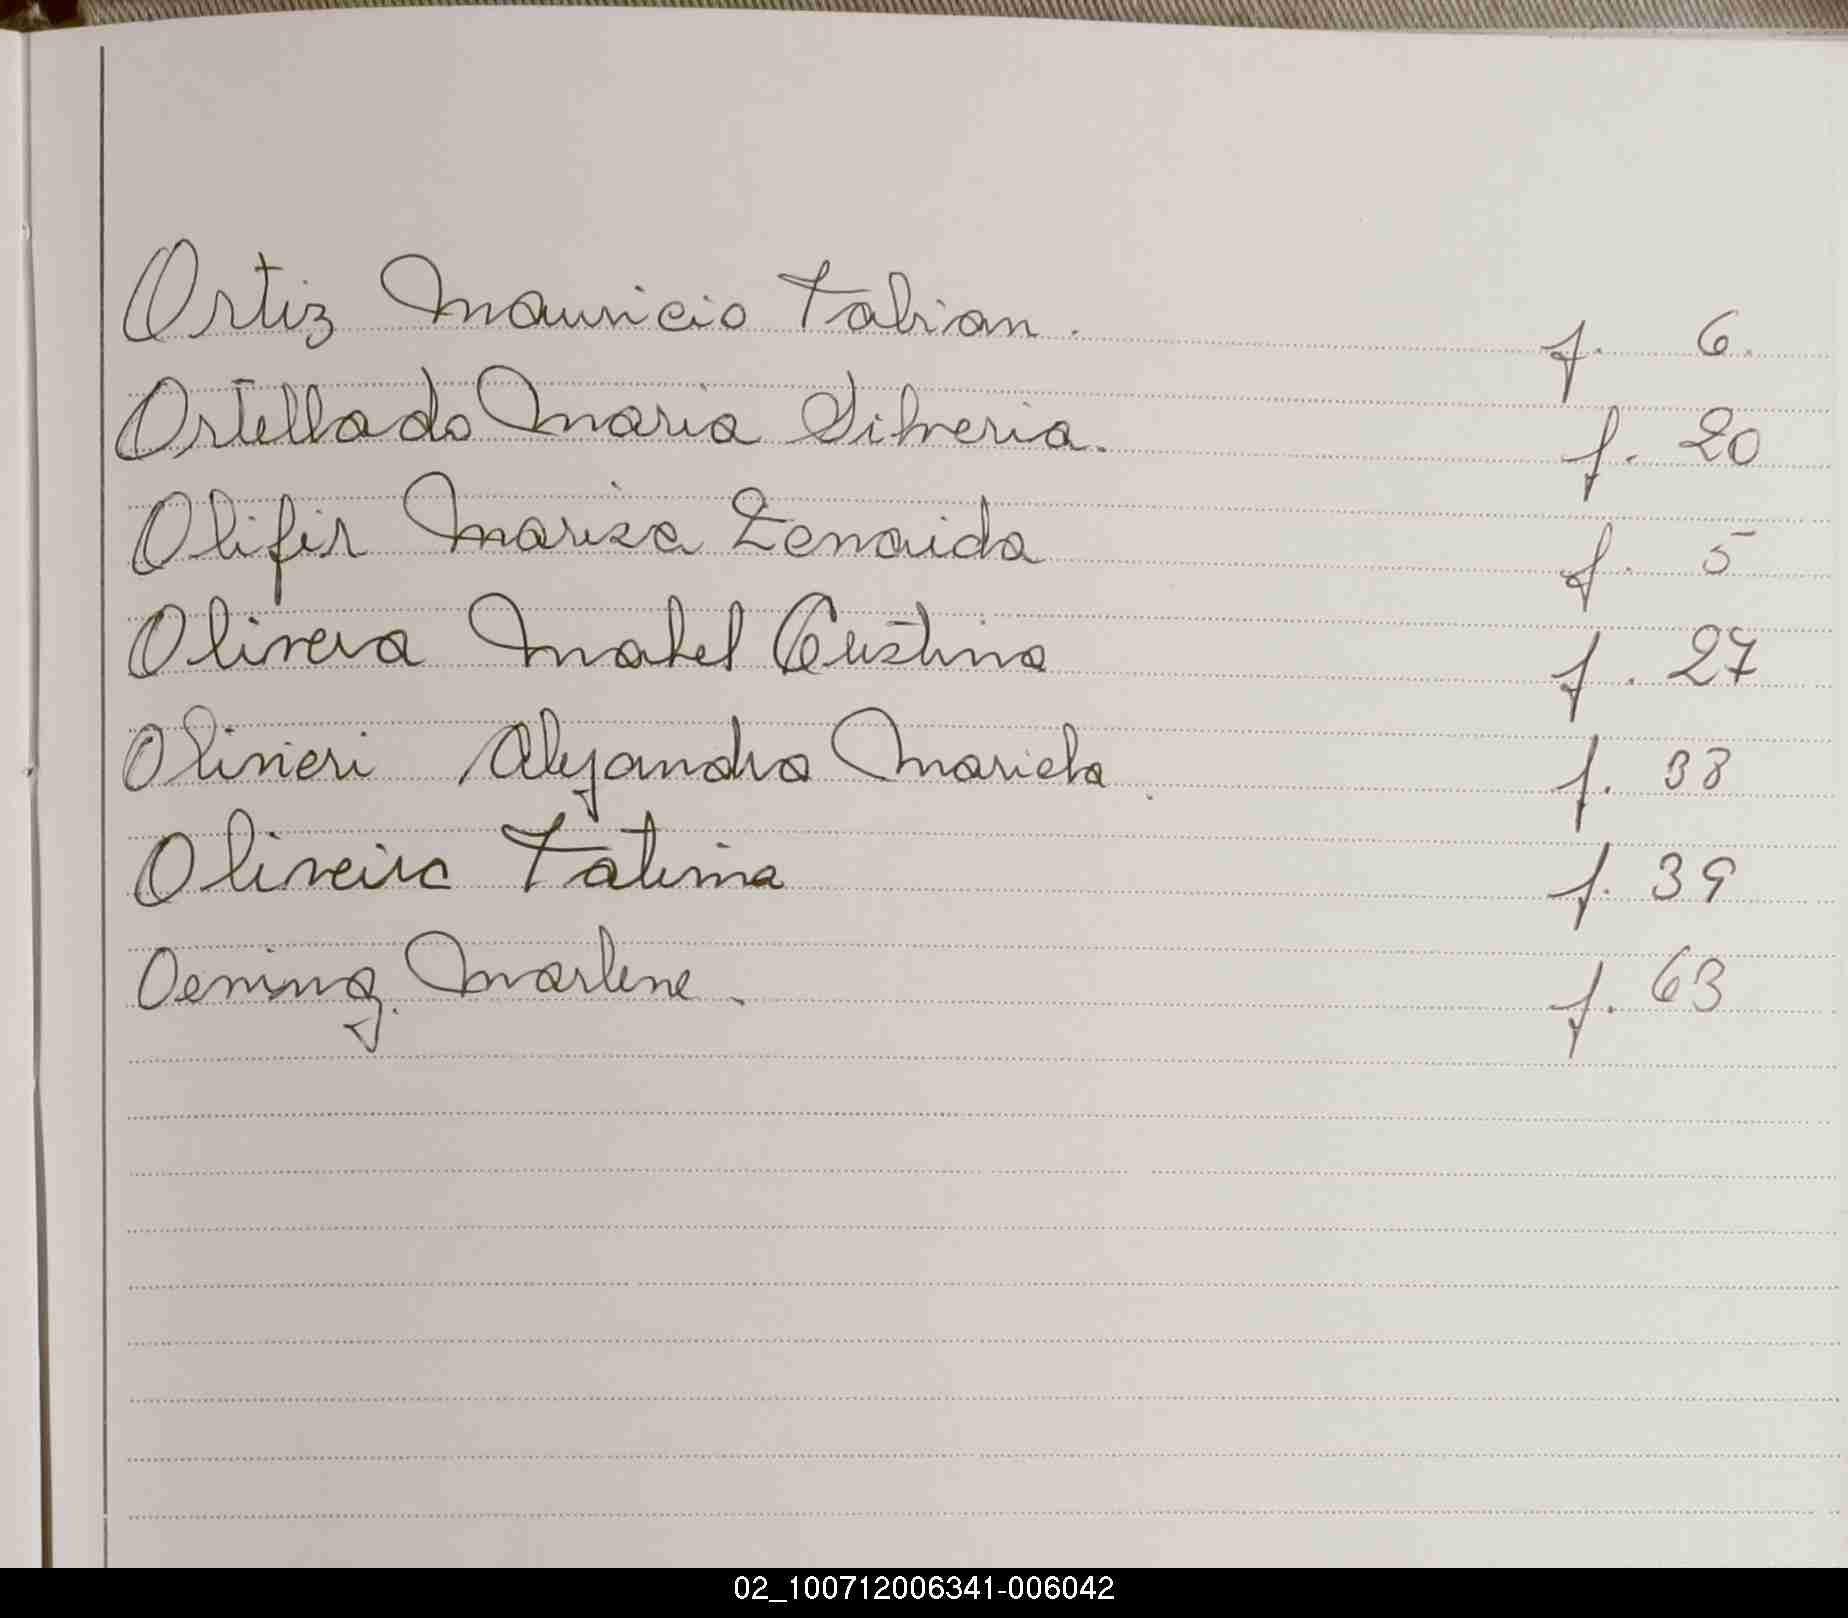 Ortiz Mauricio Fabian. f. 6.
Ortellado Maria Silveria. f. 20
Olifir Marisa Zenaida f. 5
Olivera Mabel Cristina f. 27
Olivieri Alejandra Mariela. f. 38
Oliveira Fatima f. 39
Oening. Marlene. f. 63
02_100712006341-006042